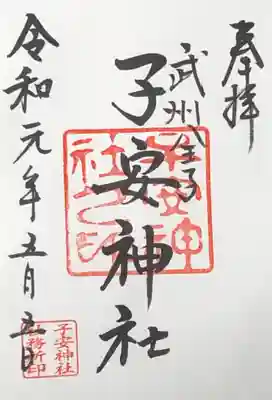 奉拝
武州八王子
子安神社
子安神社之印
令和元年五月五日
子安神社
社務所印